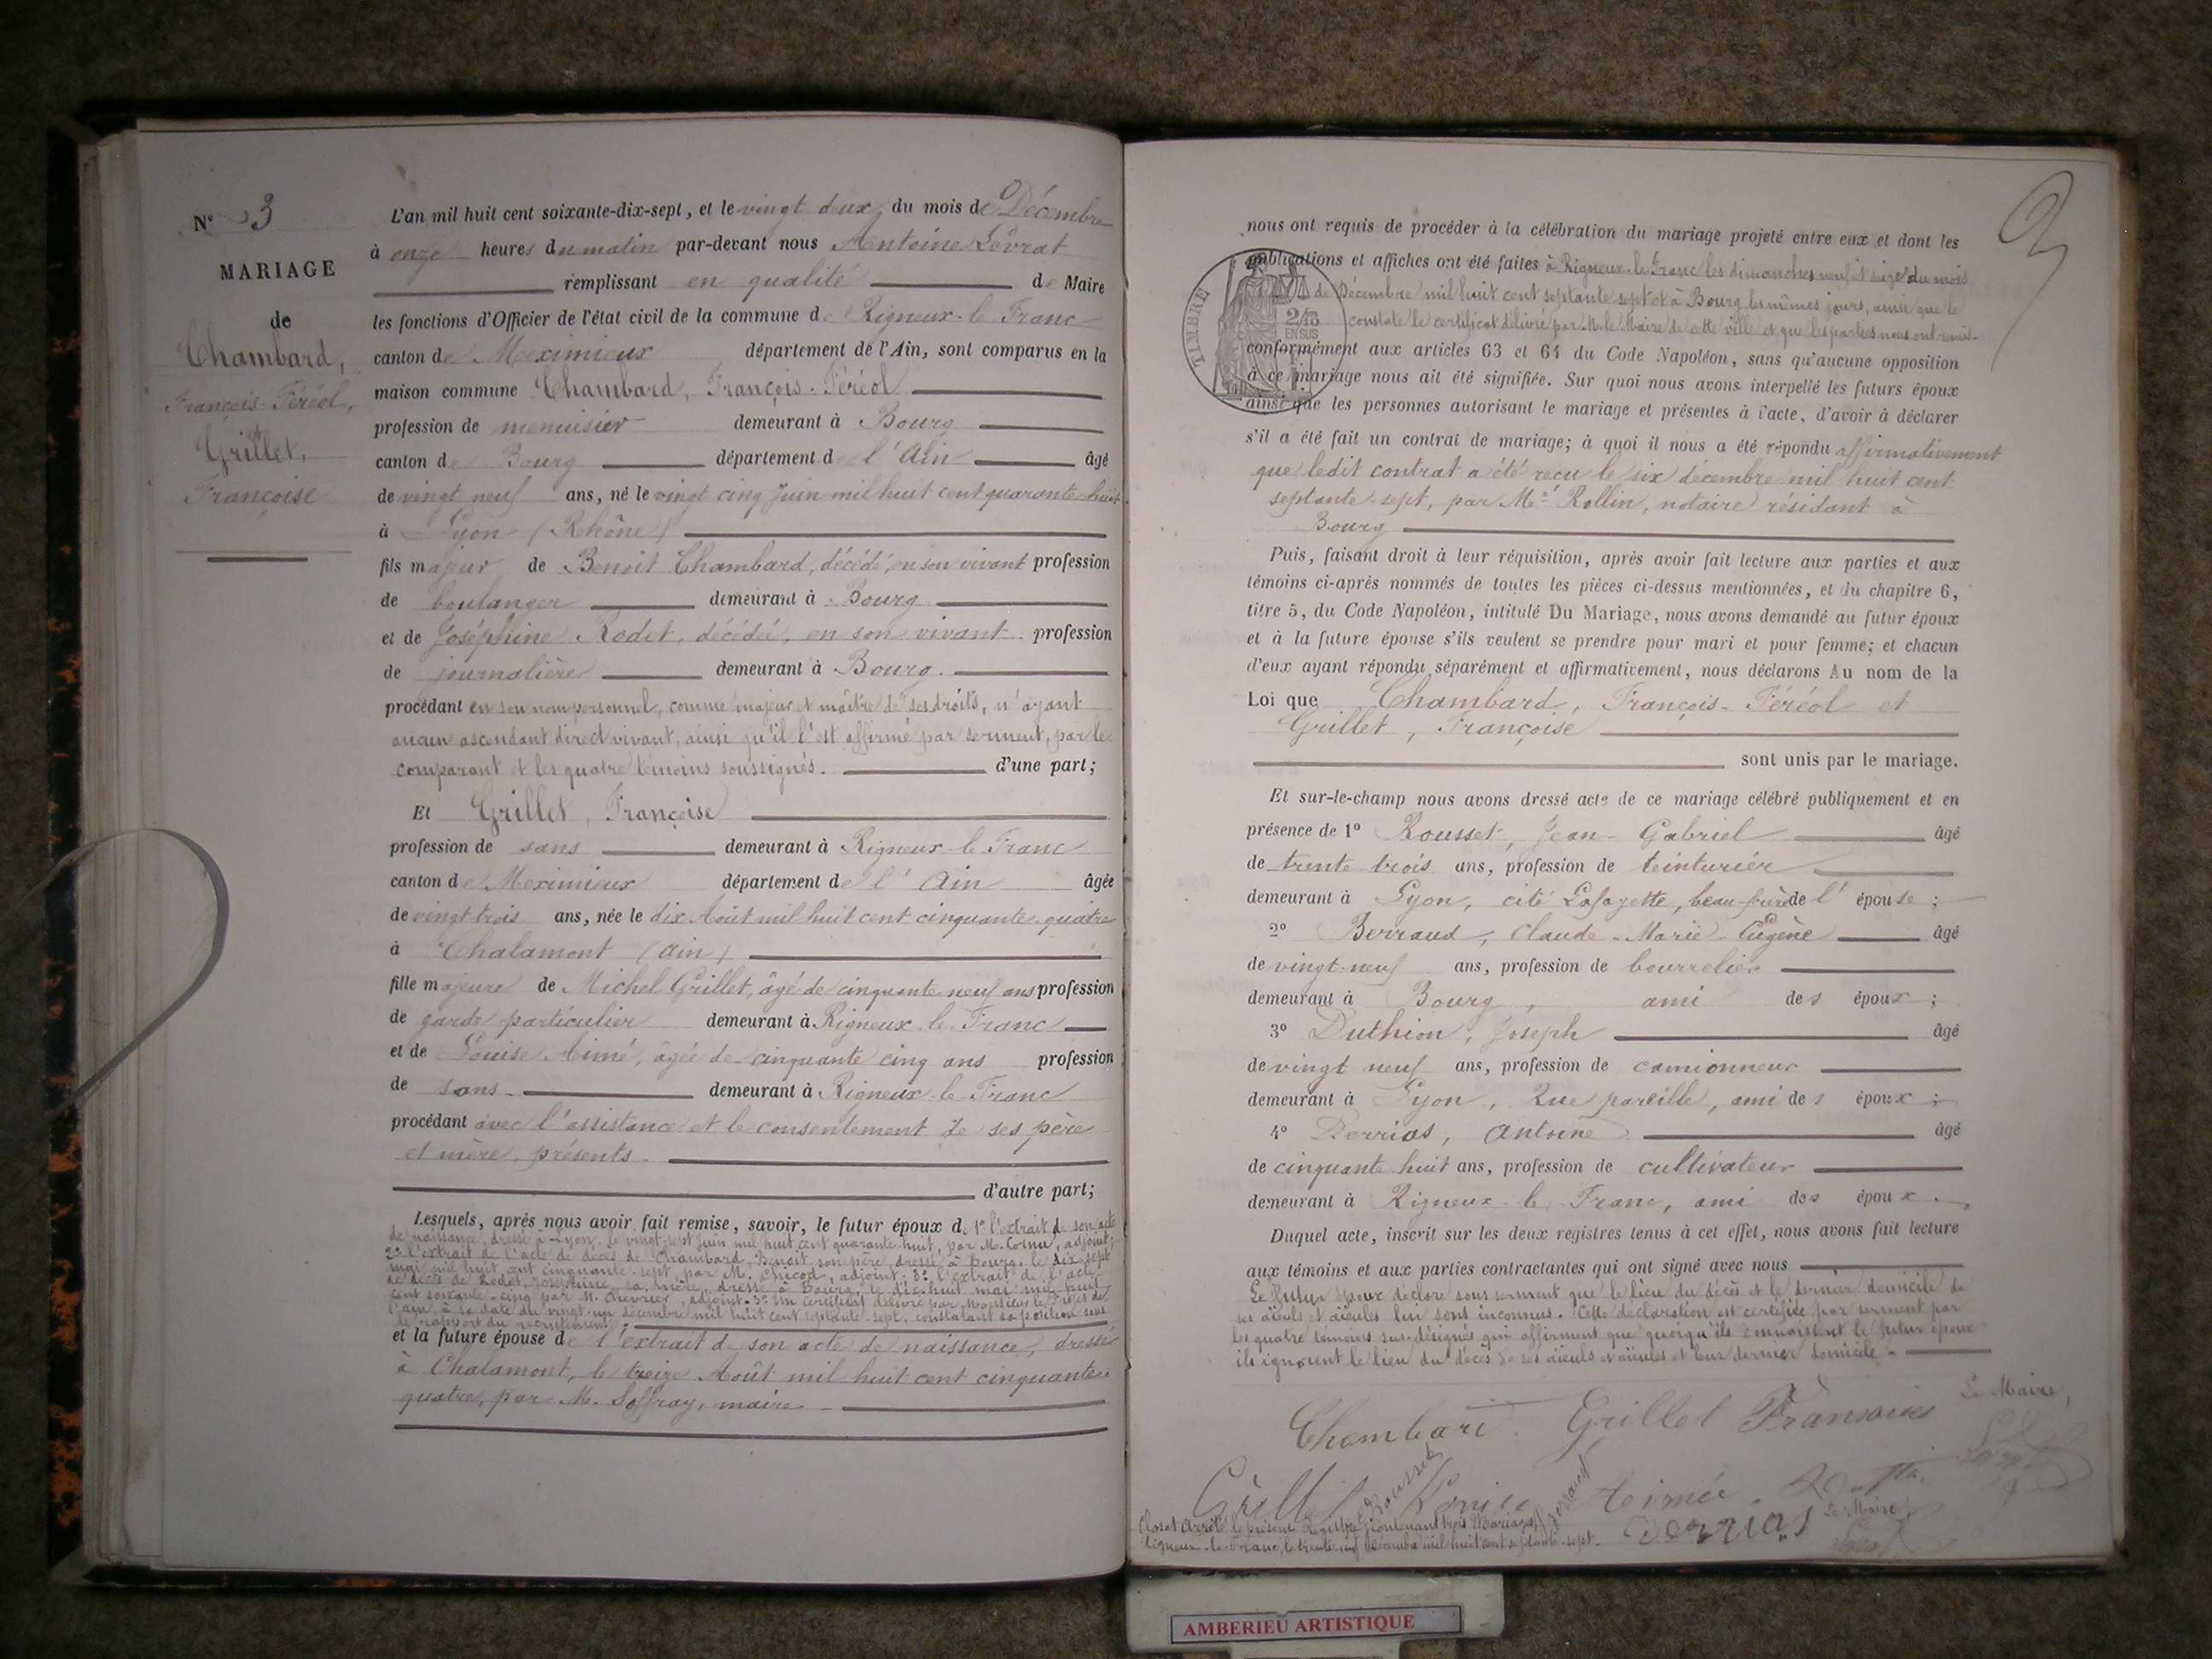 N° 3
MARIAGE
de
Chambard,
François-Féréol,
et
Grillet,
Françoise
L'an mil huit cent soixante-dix-sept, et le vingt deux, du mois de Décembre
à onze heures du matin par-devant nous Antoine Levrat
remplissant en qualité de Maire
les fonctions d'Officier de l'état civil de la commune de Rigneux-le-Franc
canton de Meximieux département de l'Ain, sont comparus en la
maison commune Chambard, François-Féréol
profession de menuisier demeurant à Bourg
canton de Bourg département de l'Ain âgé
de vingt neuf ans, né le vingt cinq Juin mil huit cent quarante-huit
à Lyon (Rhône)
fils majeur de Benoit Chambard, décédé, en son vivant profession
de boulanger demeurant à Bourg
et de Joséphine Rodet, décédée, en son vivant profession
de journalière demeurant à Bourg.
procédant en son nom personnel, comme majeur et maître de ses droits, n'ayant
aucun ascendant direct vivant, ainsi qu'il l'est affirmé par serment, par le
comparant et les quatre témoins soussignés. d'une part;
Et Grillet, Françoise
profession de sans demeurant à Rigneux-le-Franc
canton de Meximieux département de l'Ain âgée
de vingt trois ans, née le dix Août mil huit cent cinquante-quatre
à Chalamont (Ain)
fille majeure de Michel Grillet, âgé de cinquante-neuf ans profession
de garde particulier demeurant à Rigneux-le-Franc
et de Louise Aimé, âgée de cinquante cinq ans profession
de sans demeurant à Rigneux-le-Franc
procédant avec l'assistance et le consentement de ses père
et mère présents
d'autre part;
Lesquels, après nous avoir fait remise, savoir, le futur époux de 1° l'extrait de son acte
de naissance, dressé à Lyon, le vingt-sept Juin mil huit cent quarante-huit, par M. Cornu, adjoint;
2° l'extrait de l'acte de décès de Chambard, Benoit, son père, dressé à Bourg, le dix-sept
mai mil huit cent cinquante-sept, par M. Chicod, adjoint; 3° l'extrait de l'acte
de décès de Rodet, Joséphine, sa mère, dressé à Bourg, le dix-huit mai mil huit
cent soixante-cinq par M. Chevrier, adjoint. 3° Un certificat délivré par Monsieur le Préfet de
l'Ain, à la date du vingt-un décembre mil huit cent septante-sept, constatant sa position sous
le rapport du recrutement.
et la future épouse de l'extrait de son acte de naissance, dressé
à Chalamont, le treize Août mil huit cent cinquante
quatre, par M. Soffray, maire
nous ont requis de procéder à la célébration du mariage projeté entre eux et dont les
publications et affiches ont été faites à Rigneux-le-Franc les dimanches neuf et seize du mois
de Décembre mil huit cent septante sept et à Bourg les mêmes jours, ainsi que le
constate le certificat délivré par M. le Maire de cette ville et que les parties nous ont remis.
TIMBRE
2/10
EN SUS
conformément aux articles 63 et 64 du Code Napoléon, sans qu'aucune opposition
à ce mariage nous ait été signifiée. Sur quoi nous avons interpellé les futurs époux
ainsi que les personnes autorisant le mariage et présentes à l'acte, d'avoir à déclarer
s'il a été fait un contrat de mariage; à quoi il nous a été répondu affirmativement
que ledit contrat a été reçu le six décembre mil huit cent
septante-sept, par Me Rollin, notaire résidant à
Bourg
Puis, faisant droit à leur réquisition, après avoir fait lecture aux parties et aux
témoins ci-après nommés de toutes les pièces ci-dessus mentionnées, et du chapitre 6,
titre 5, du Code Napoléon, intitulé Du Mariage, nous avons demandé au futur époux
et à la future épouse s'ils veulent se prendre pour mari et pour femme; et chacun
d'eux ayant répondu séparément et affirmativement, nous déclarons Au nom de la
Loi que Chambard, François-Féréol et
Grillet, Françoise
sont unis par le mariage.
Et sur-le-champ nous avons dressé acte de ce mariage célébré publiquement et en
présence de 1° Rousset, Jean-Gabriel âgé
de trente trois ans, profession de teinturier
demeurant à Lyon, cité Lafayette, beau-frère de l'épouse;
2° Berraud, Claude-Marie-Eugène âgé
de vingt-neuf ans, profession de bourrelier
demeurant à Bourg, ami des époux;
3° Duthion, Joseph âgé
de vingt neuf ans, profession de camionneur
demeurant à Lyon, Rue pareille, ami des époux;
4° Derrias, Antoine âgé
de cinquante huit ans, profession de cultivateur
demeurant à Rigneux-le-Franc, ami des époux.
Duquel acte, inscrit sur les deux registres tenus à cet effet, nous avons fait lecture
aux témoins et aux parties contractantes qui ont signé avec nous
Le futur époux déclare sous serment que le lieu du décès et le dernier domicile de
ses aïeuls et aïeules lui sont inconnus. Cette déclaration est certifiée par serment par
les quatre témoins sus-désignés qui affirment que quoiqu'ils connaissent le futur époux
ils ignorent le lieu du décès de ses aïeuls et aïeules et leur dernier domicile.
Chambard Grillet Fransoise Le Maire,
Levrat
Grillet Rousset Louise Berraud Aimée
Derrias Le Maire,
Clos et Arrêté le présent Registre contenant trois Mariages,
Rigneux-le-Franc, le trente-un Décembre mil huit cent septante-sept.
AMBERIEU ARTISTIQUE